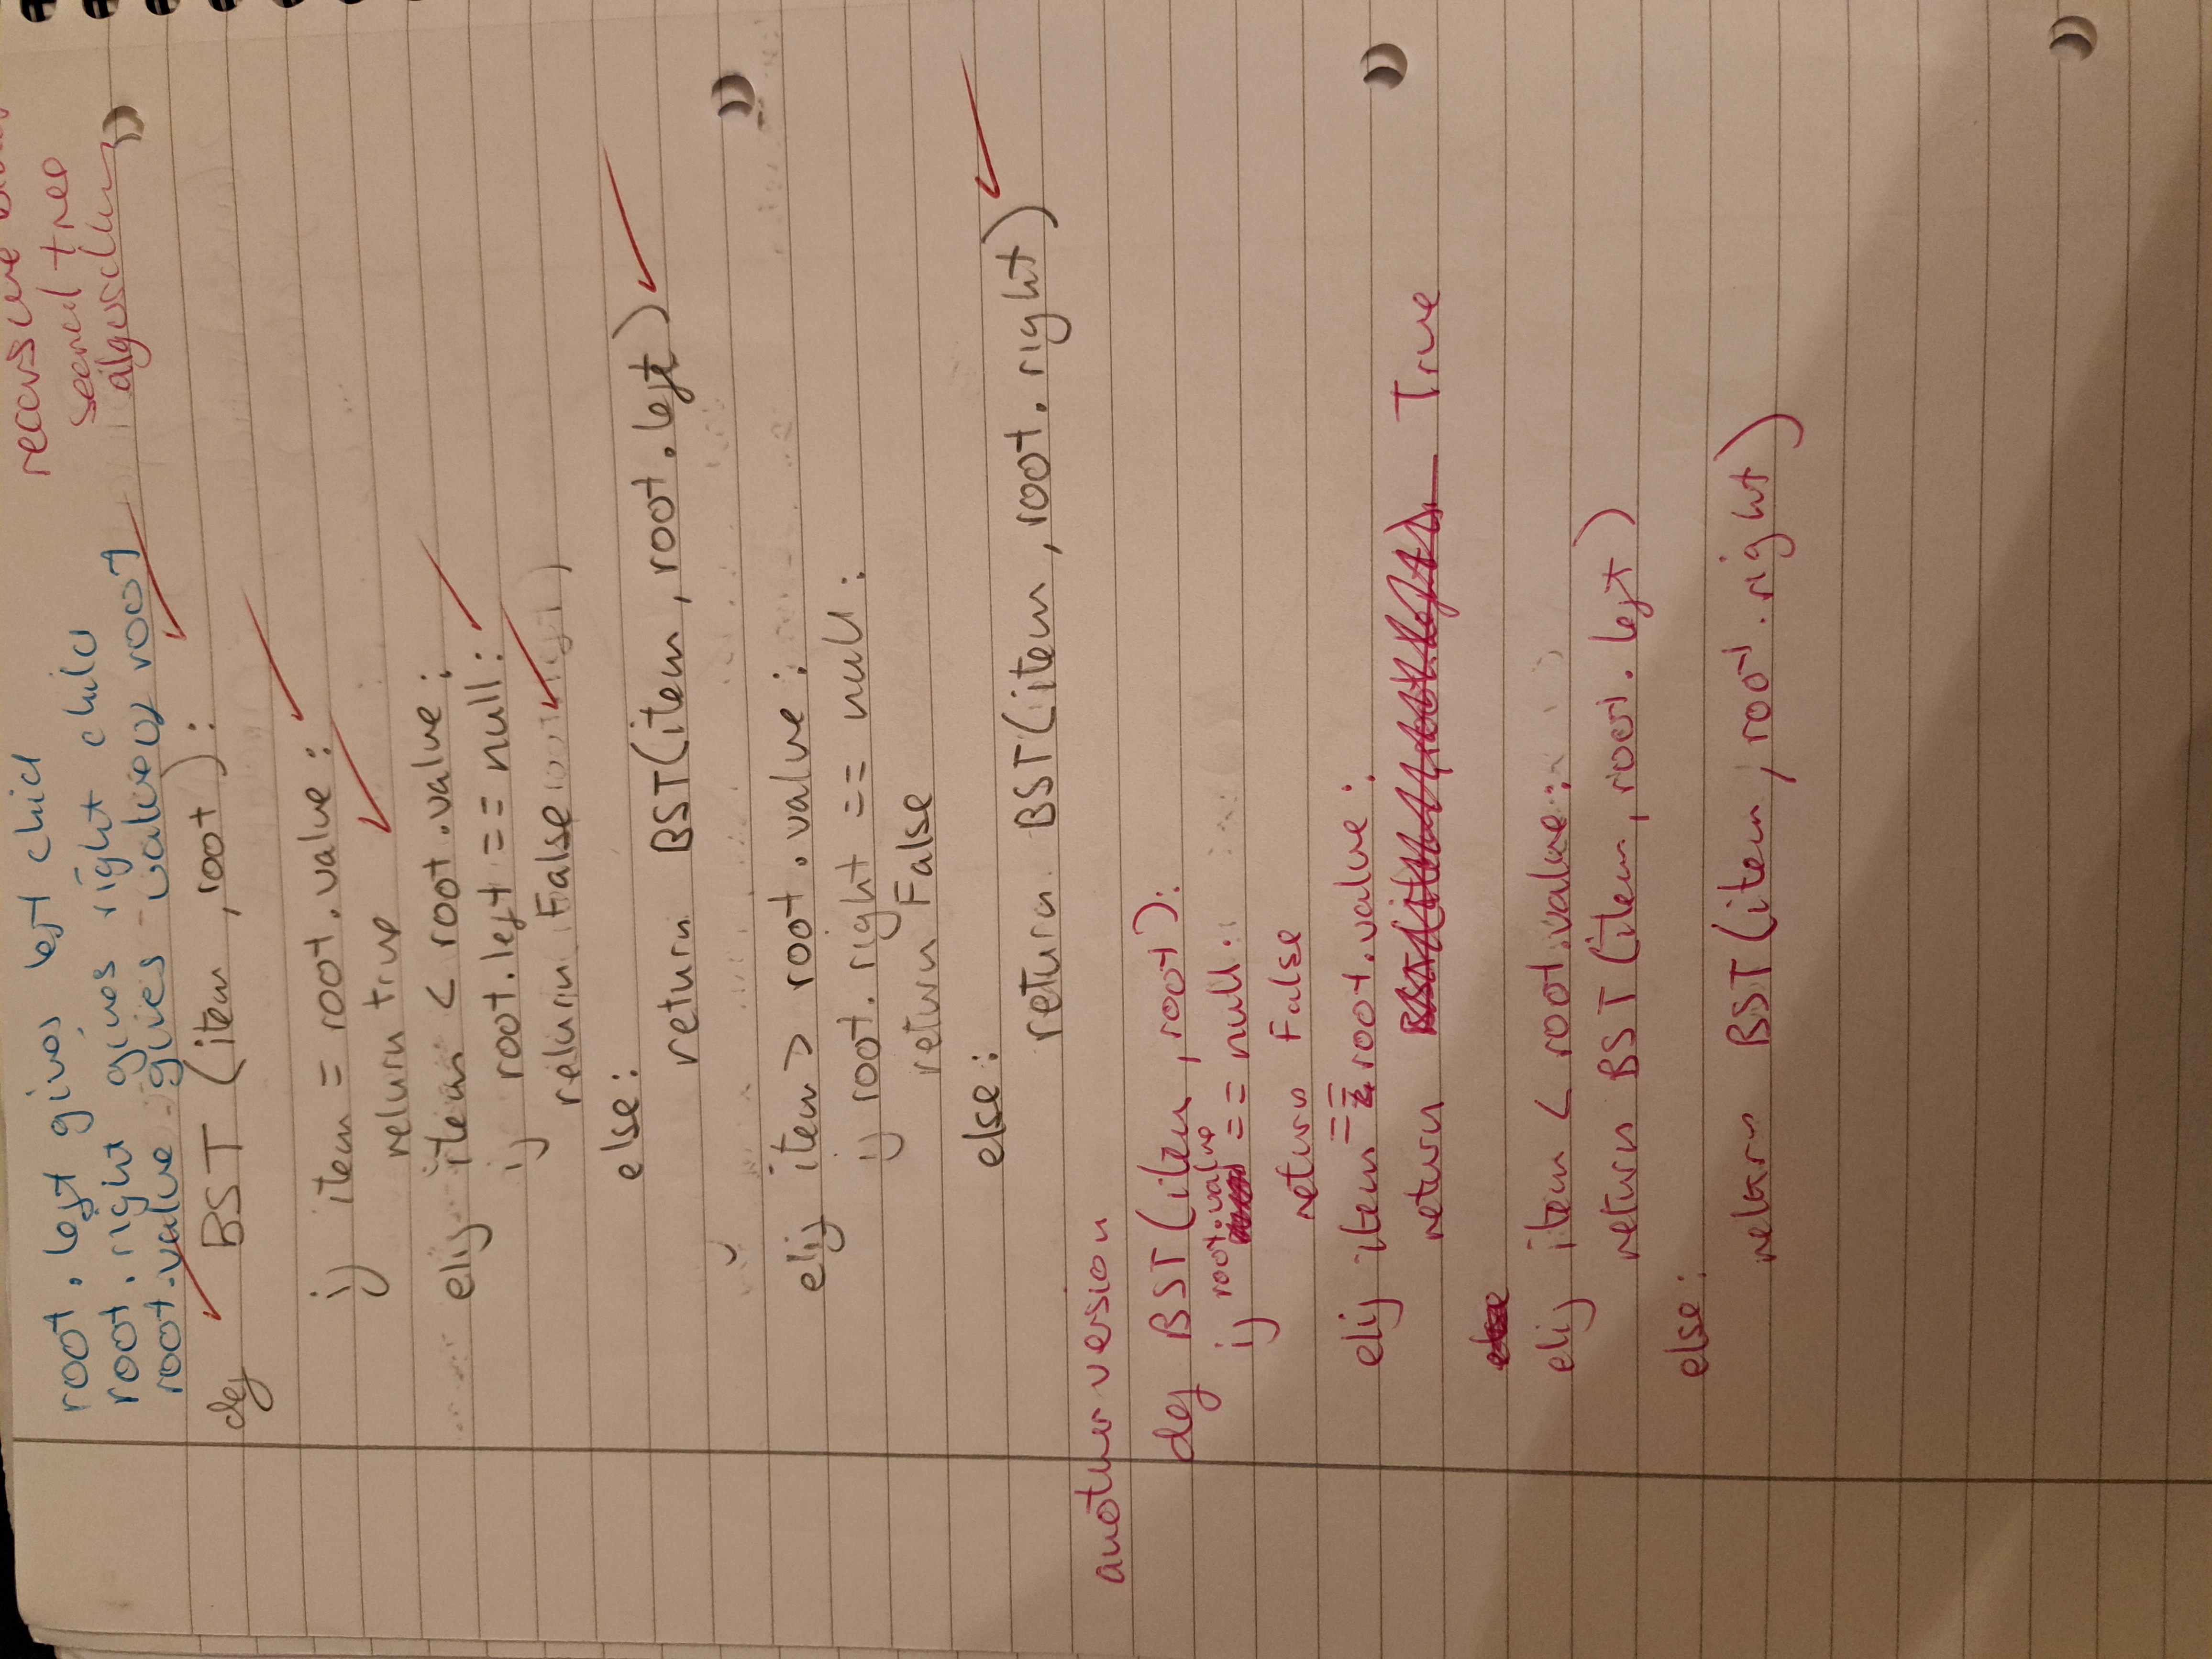 root.left gives left child
root.right gives right child
root.value gives value of root
recursive
search tree
algorithm
def BST (item, root):
if item = root.value:
return true
elif item < root.value:
if root.left == null:
return False
else:
return BST(item, root.left)
elif item > root.value:
if root.right == null:
return False
else:
return BST(item, root.right)
another version
def BST(item, root):
if root.value == null:
return False
elif item == root.value:
return True
else
elif item < root.value:
return BST(item, root.left)
else:
return BST(item, root.right)